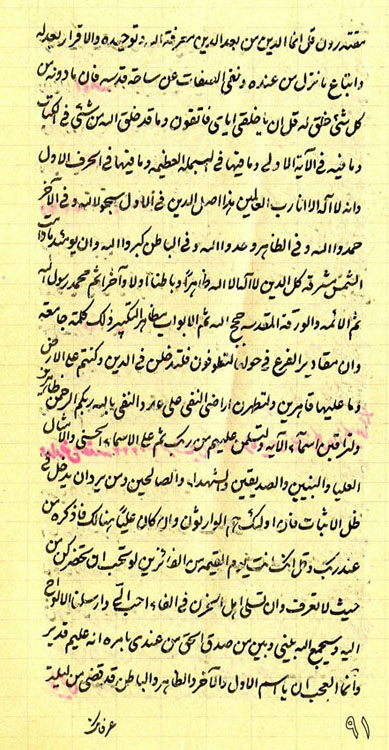 مقتدرون قل انما الدين من بعد الدين معرفة الله و توحيده والاقرار بعدله
واتباع ما نزل من عنده ونفى الصفات عن ساحة قدسه فان ما دونه من
كل شئ خلق له قل ان يا خلقى اياى فاتقون وما قد خلق الله من شئ فى الكتاب
وما فيه فى الآية الاولى وما فيها فى البسملة العظيمة وما فيها فى الحرف الاول
وانه لا اله الا انا رب العالمين هذا اصل الدين فى الاول وفى الآخر
الله وفى الظاهر وعدوا الله وفى الباطن كبروا الله وان يومئذ
الشمس مشرقة كل الدين لا اله الا الله ظاهراً وباطنا اولا وآخرا ثم محمد رسول الله
ثم الائمة والورقة المقدسه حجج الله ثم الابواب ذلك كلمة جامعة
وان مقادير الفرع فى حولها لتطوفون فلتدخلن فى الدين ولتملكن على الارض
وما عليها قاهرين ولتطهرن اراضى النفى على عز والنفى بالله ربكم الرحمن
اسماء الآية ولتسلمن عليهم من ربك ثم على الاسماء الحسنى والامثال
العليا والنبيين والصديقين والشهداء والصالحين ومن يرد ان يدخل فى
ظل الاثبات فان اولئك هم الوارثون وان كان علياً هنالك فاذكره من
عند ربك وقل انك انت يوم القيمة من الفائزين
حيث لا تعرف وان تسلى اهل الحزن فى الفاء احب الى وارسلنا الالواح
اليه وسيجمع الله بينى وبين من صدق الحق من عندى بامره انه عليم قدير
وانما العجب ان يا اسم الاول والآخر والظاهر والباطن قد قضى من ليلة
۹۱